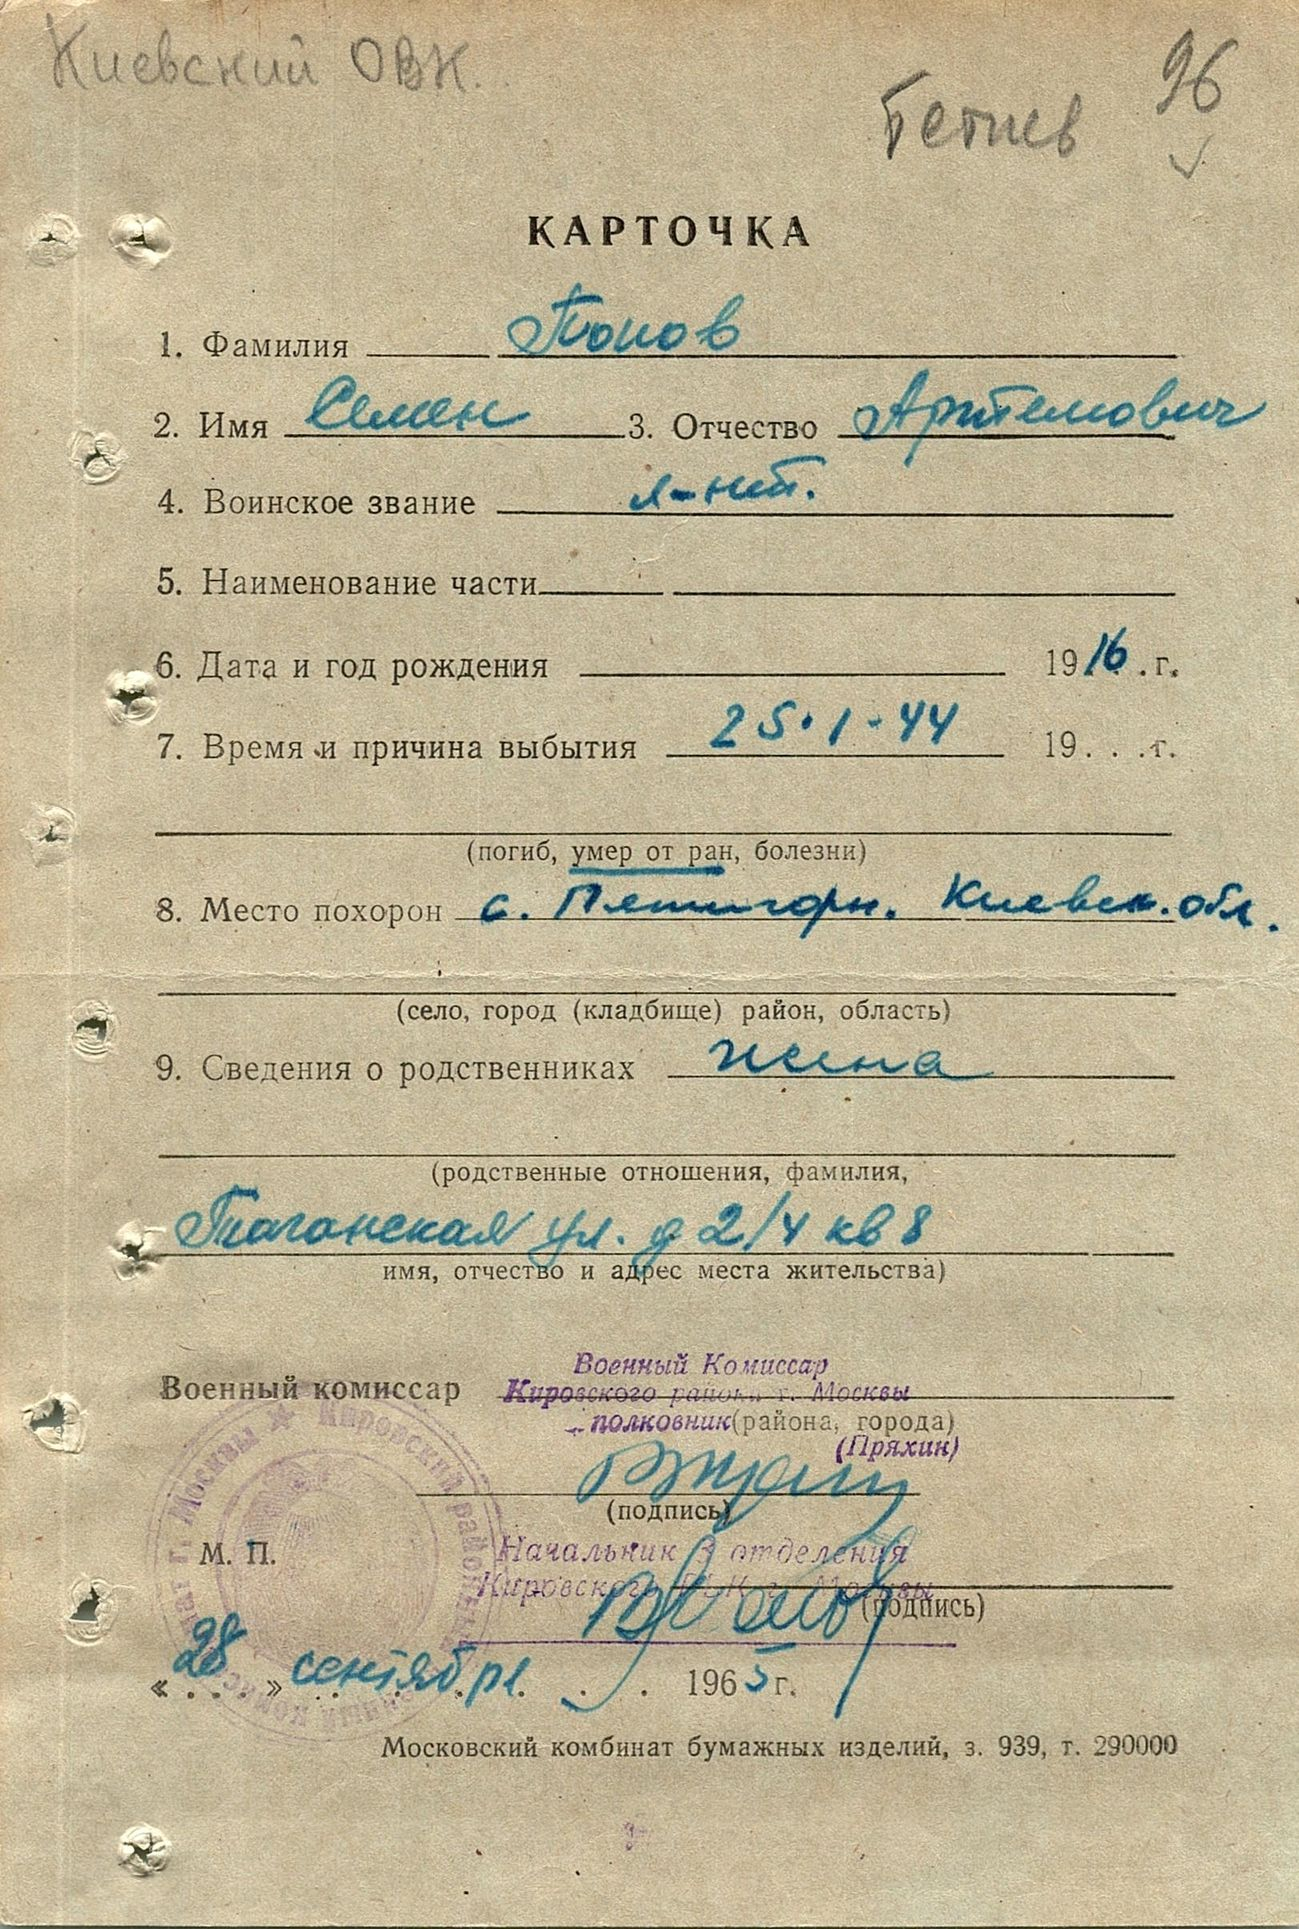 Киевский ОВК.
96
Тетиев
КАРТОЧКА
1. Фамилия Попов
2. Имя Семен 3. Отчество Артемович
4. Воинское звание л-нт.
5. Наименование части
6. Дата и год рождения 1916. г.
7. Время и причина выбытия 25.1-44 19. . .г.
(погиб, умер от ран, болезни)
8. Место похорон с. Пятигорк. Киевск. обл.
(село, город (кладбище) район, область)
9. Сведения о родственниках жена
(родственные отношения, фамилия,
Таганская ул. д 2/4 кв 8
имя, отчество и адрес места жительства)
Военный Комиссар
Военный комиссар Кировского района г. Москвы
полковник (района, города)
(Пряхин)
(подпись)
Начальник 3 отделения
М. П.
Кировского РВК г. Москвы
(подпись)
«28» сентября 1965 г.
Московский комбинат бумажных изделий, з. 939, т. 290000